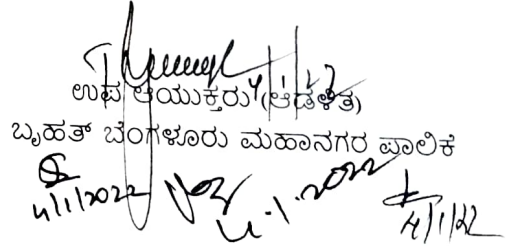 4/1/22
ಉಪ ಆಯುಕ್ತರು (ಆಡಳಿತ)
ಬೃಹತ್ ಬೆಂಗಳೂರು ಮಹಾನಗರ ಪಾಲಿಕೆ
4/1/2022 4.1.2022 4/1/22